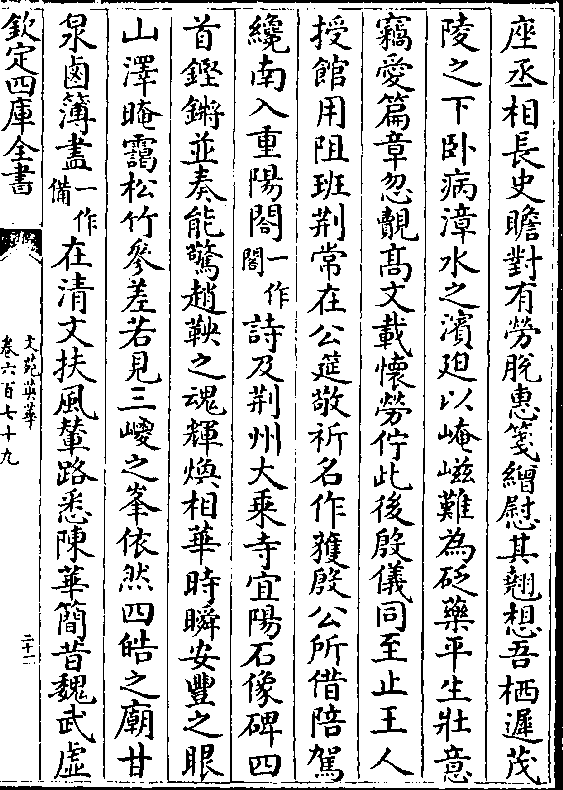 座丞相長史瞻對有勞脫惠箋繒慰其翹想吾栖遲茂
陵之下卧病漳水之濵廹以崦嵫難為砭藥平生壯意
竊愛篇章忽覿髙文載懷勞佇此後殷儀同至止王人
授館用阻班荆常在公筵敬祈名作獲殷公所借陪駕
纔南入重陽閤一作閣詩及荆州大乗寺宜陽石像碑四
首鏗鏘並奏能驚趙鞅之魂輝煥相華時瞬安豐之眼
山澤晻靄松竹參差若見三嵕之峯依然四皓之廟甘
泉鹵簿盡一作備在清文扶風輦路悉陳華簡昔魏武虛
欽定四庫全書
文苑英華
卷六百七十九
二十一